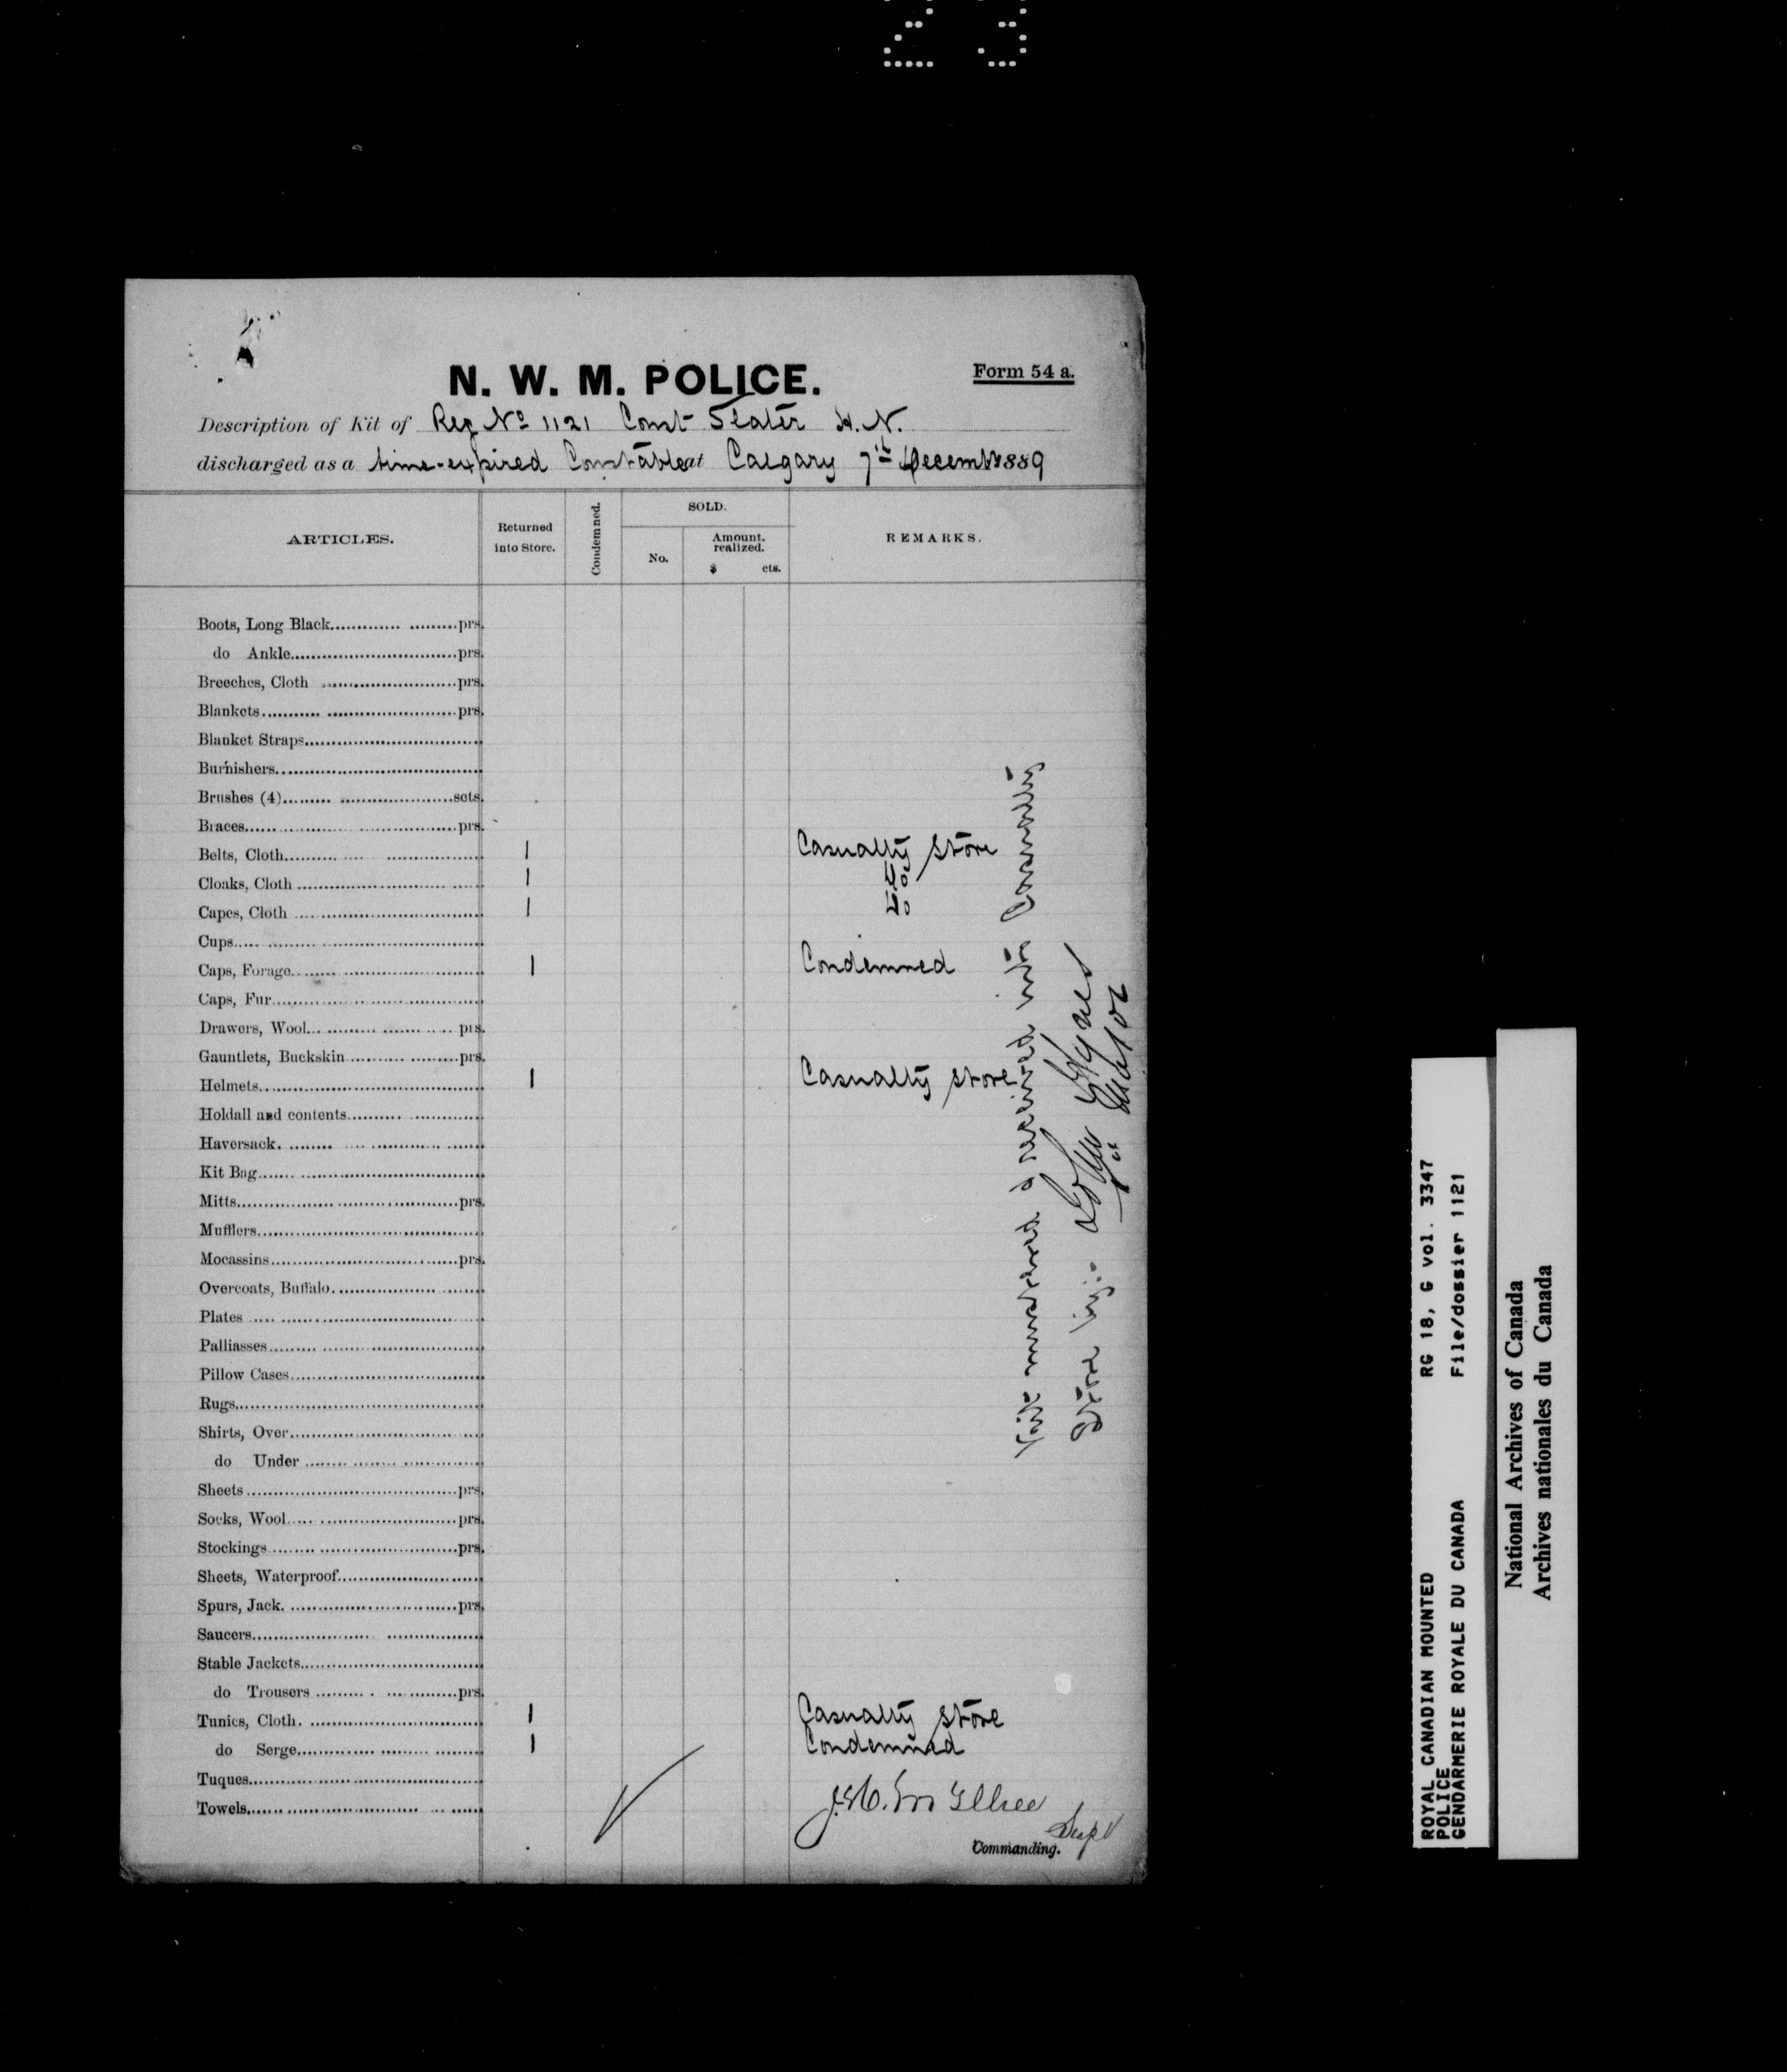 23
N. W. M. POLICE.
Form 54 a.
Description of Kit of Reg Nº 1121 Const Slater H. N.
discharged as a time-expired Constable at Calgary 7th December 1889
ARTICLES.
Returned into Store.
Condemned.
SOLD.
No.
Amount. realized.
$ cts.
REMARKS.
Boots, Long Black.................... prs.
do Ankle.................... prs.
Breeches, Cloth .................... prs.
Blankets.................... prs.
Blanket Straps....................
Burnishers....................
Brushes (4).................... sets.
Braces.................... prs.
Belts, Cloth.................... 1 Casualty Store
Cloaks, Cloth .................... 1 Do
Capes, Cloth .................... 1 Do
Cups....................
Caps, Forage.................... 1 Condemned
Caps, Fur....................
Drawers, Wool.................... prs.
Gauntlets, Buckskin.................... prs.
Helmets.................... 1 Casualty Store
Holdall and contents....................
Haversack. ....................
Kit Bag....................
Mitts.................... prs.
Mufflers....................
Mocassins.................... prs.
Overcoats, Buffalo....................
Plates ....................
Palliasses....................
Pillow Cases....................
Rugs....................
Shirts, Over....................
do Under ....................
Sheets .................... prs.
Socks, Wool.................... prs.
Stockings .................... prs.
Sheets, Waterproof....................
Spurs, Jack. .................... prs.
Saucers....................
Stable Jackets....................
do Trousers .................... prs.
Tunics, Cloth. .................... 1 Casualty Store
do Serge.................... 1 Condemned
Tuques....................
Towels....................
Kit mustered & received into Casualty
Store by:-
Supt
Commanding.
ROYAL CANADIAN MOUNTED POLICE
GENDARMERIE ROYALE DU CANADA
RG 18, G vol. 3347
File/dossier 1121
National Archives of Canada
Archives nationales du Canada